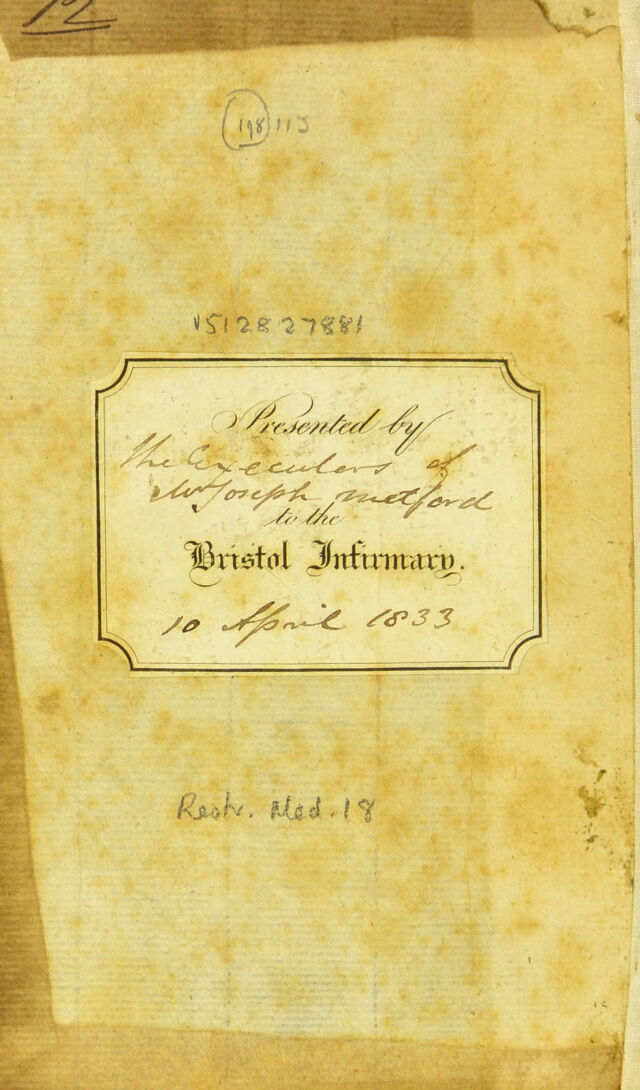 12
198 115
1512827881
Presented by
the Executors of
Mr Joseph Metford
to the
Bristol Infirmary.
10 April 1833
Restr. Med. 18